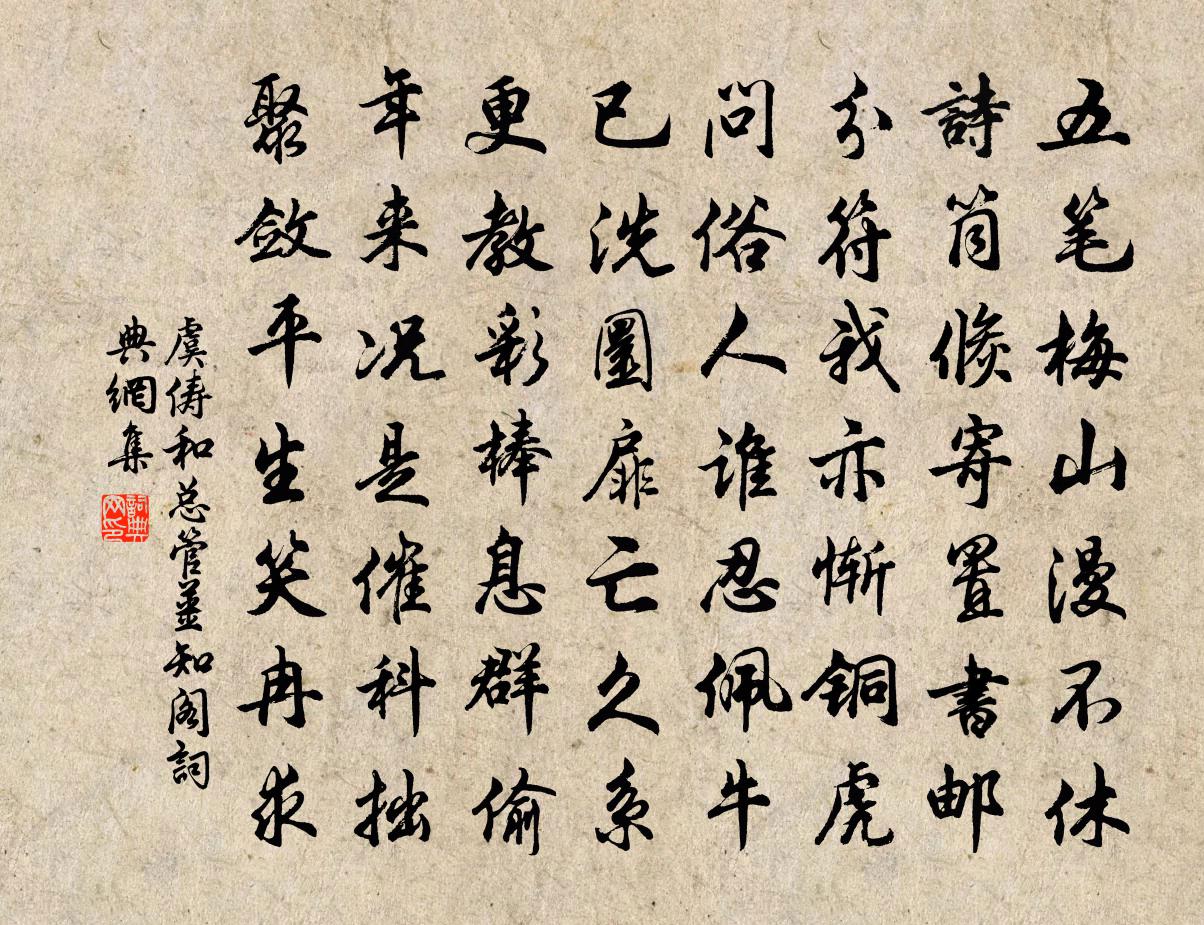 五笔梅山漫不休
詩筒倐寄置書邮
分符我亦惭铜虎
问俗人谁忍佩牛
已洗圜扉亡久系
更教彩棒息群偷
年来况是催科拙
聚敛平生笑冉求
虞俦和总管姜知阁詞
典網集
詞典网印